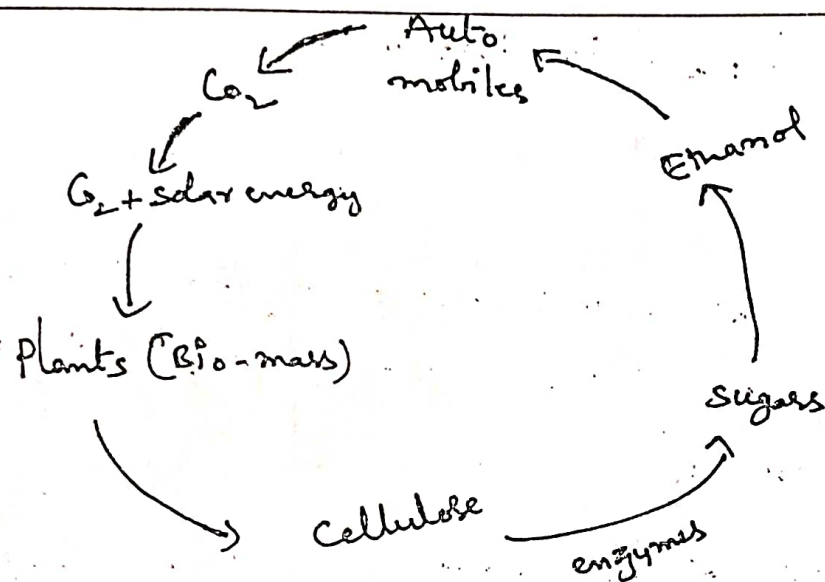 Auto
mobiles
Co2
G2 + solar energy
Plants (Bio-mass)
Cellulose
enzymes
Sugars
Ethanol